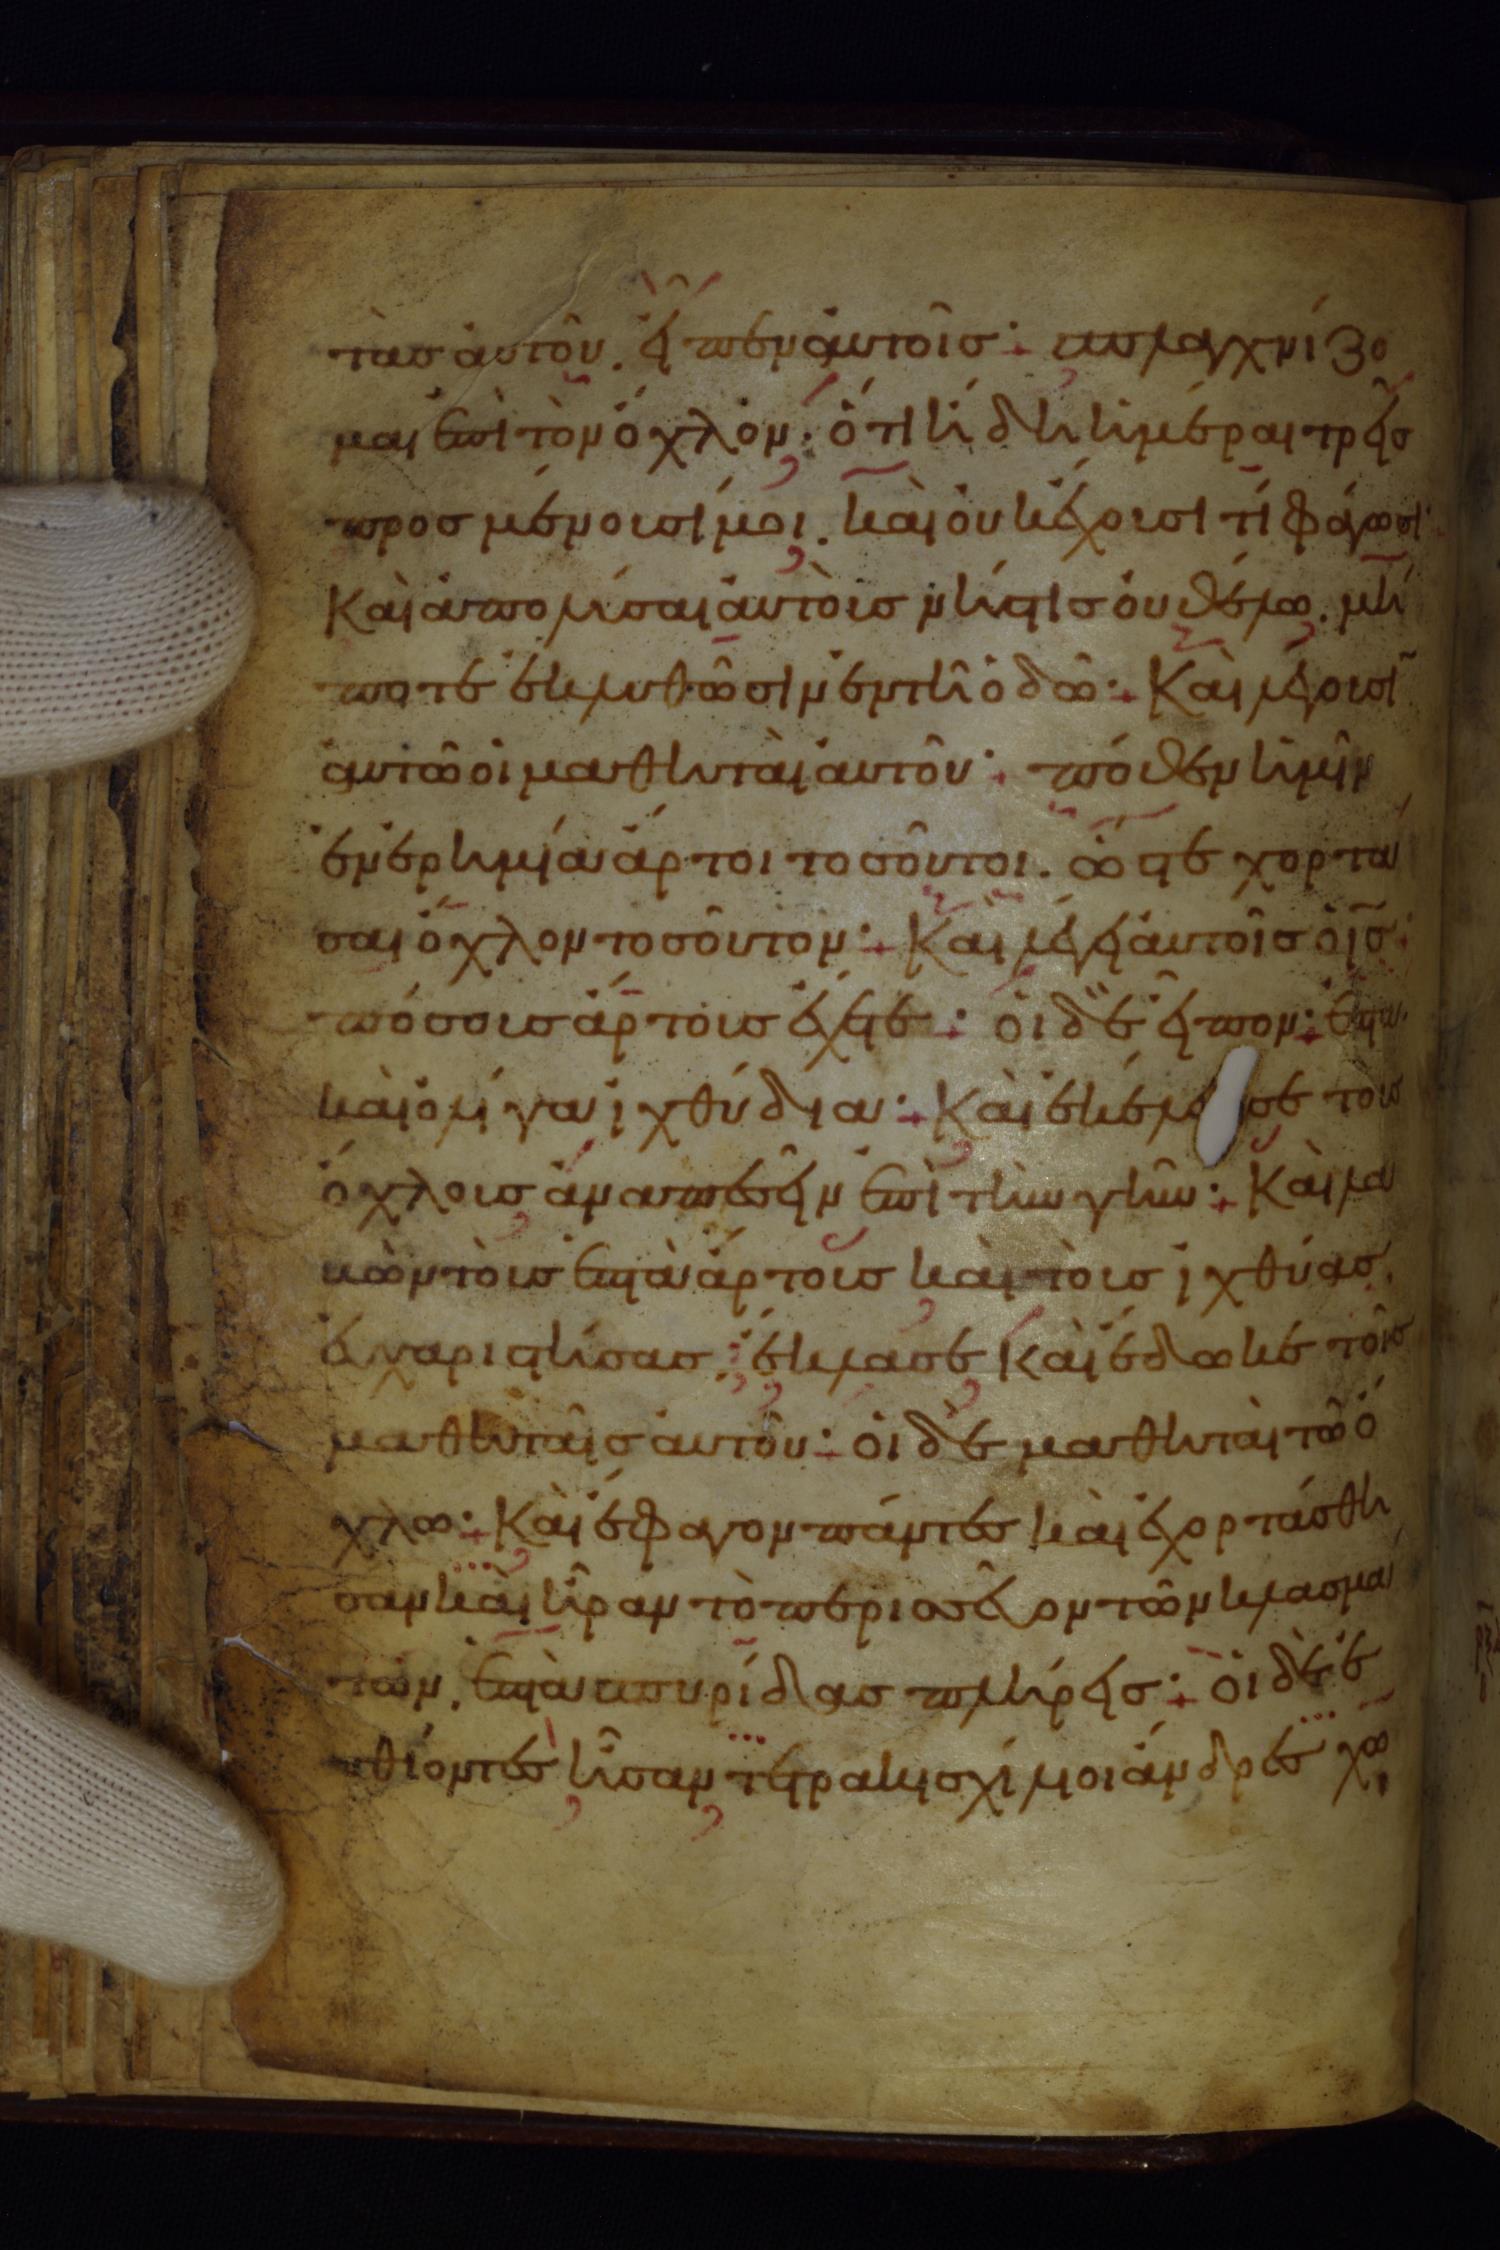 τὰσ ἀυτοῦ. ἔιπεν ἀυτοῖσ· σπλαγχνίζο
μαι ἐπὶ τὸν ὄχλον· ὅτι ἤδη ἡμέραι τρεῖσ
προσμένουσί μοι. καὶ ὀυκ ἔχουσι τί φάγωσι·
Καὶ ἀπολύσαι ἀυτοὺσ νήστισ ὀυ θέλω. μή
ποτε ἐκλυθῶσιν ἐν τῆ ὁδῶ· Καὶ λέγουσῖ
ἀυτῶ ὁι μαθηταὶ ἀυτοῦ· πόθεν ἡμῖν
ἐν ἐρημία ἄρτοι τοσοῦτοι. ὥστε χορτα
σαι ὄχλον τοσοῦτον· Καὶ λέγει ἀυτοῖσ ὁ ι̅σ̅·
πόσουσ ἄρτουσ ἔχετε· ὁι δὲ εἶπον· ἑπτὰ.
καὶ ὀλίγα ἰχθύδια· Καὶ ἐκέλευσε τουσ
ὄχλουσ ἀναπεσεῖν ἐπὶ τὴν γῆν· Καὶ λα
βὼν τοὺσ ἑπτὰ ἄρτουσ καὶ τοὺσ ἰχθύασ.
ἐυχαριστήσασ· ἔκλασε Καὶ ἔδωκε τοῖσ
μαθηταῖσ ἀυτοῦ· ὁι δὲ μαθηταὶ τῶ ὄ
χλω· Καὶ ἔφαγον πάντεσ καὶ ἐχορτάσθη
σαν καὶ ἦραν τὸ περισσεῦον τῶν κλασμα
των. ἑπτὰ σπυρίδασ πλήρεισ· ὁι δὲ ἐ
σθίοντεσ ἦσαν τετρακισχίλιοι ἄνδρεσ χω